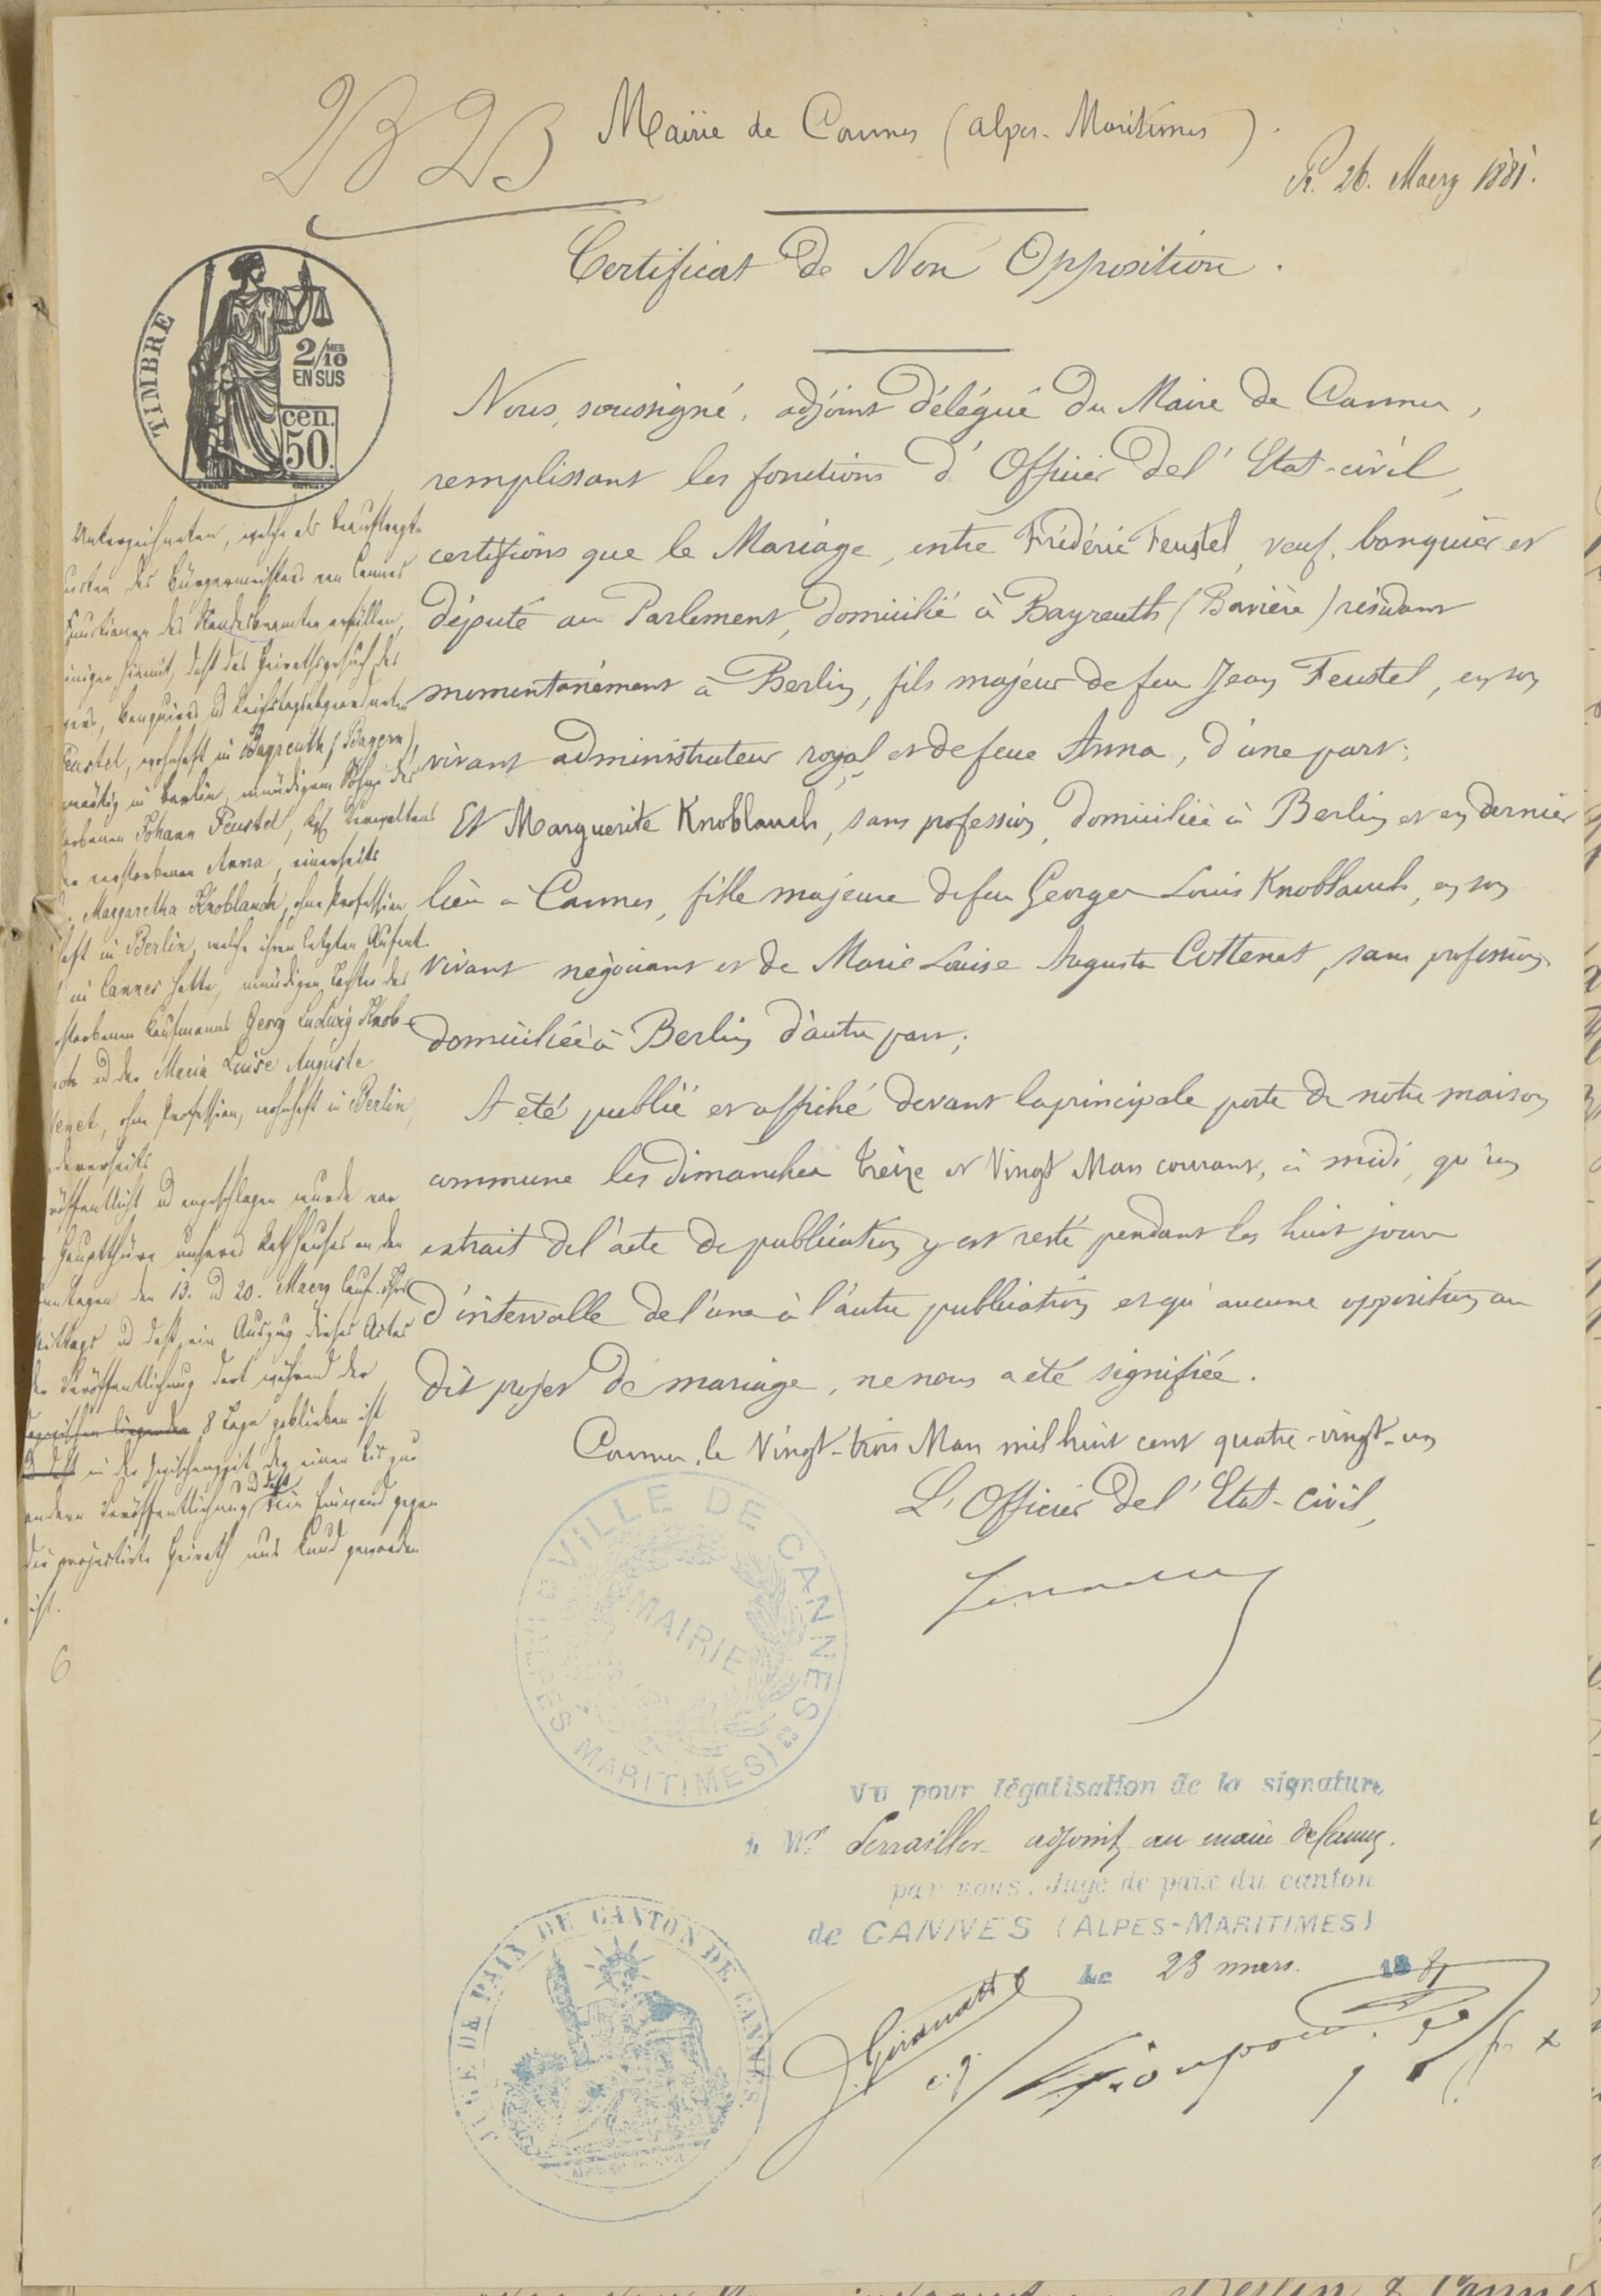 Mairie de Cannes (Alpes-Maritimes).
26. Maerz 1881.
Certificat de Non Opposition.
TIMBRE
2/10 MES
EN SUS
cen.
50.
Nous, soussigné, adjoint délégué du Maire de Cannes,
remplissant les fonctions d'Officier de l'Etat-civil,
certifions que le Mariage, entre Frédéric Feustel, veuf, banquier et
député au Parlement, domicilié à Bayreuth (Bavière) résidant
momentanément à Berlin, fils majeur de feu Jean Feustel, en son
vivant administrateur royal et de feue Anna, d'une part;
Et Marguerite Knoblauch, sans profession, domiciliée à Berlin et en dernier
lieu à Cannes, fille majeure de feu Georges Louis Knoblauch, en son
vivant négociant et de Marie Louise Augusta Cottenet, sans profession
domiciliée à Berlin d'autre part;
A été publié et affiché devant la principale porte de notre maison
commune les dimanches treize et Vingt Mars courant, à midi, qu'un
extrait de l'acte de publication y est resté pendant les huit jours
d'intervalle de l'une à l'autre publication et qu'aucune opposition au
dit projet de mariage, ne nous a été signifiée.
Cannes, le Vingt-trois Mars mil huit cent quatre-vingt-un
L'Officier de l'Etat-civil,
Unterzeichneten, welche als beauftragte
des Bürgermeisters von Cannes
Funktionen des Standesbeamten erfüllen,
hiemit, daß das Heirathsgesuch des
Banquiers u Reichstagsabgeordneten
Feustel, wohnhaft in Bayreuth (Bayern),
in Berlin, mündigem Sohne des
Johann Feustel, kgl. Verwalters
verstorbenen Anna, einerseits
Margaretha Knoblauch, ohne Profession
in Berlin, welche ihren letzten Aufent-
in Cannes hatte, mündigen Tochter des
Kaufmanns Georg Ludwig Knob-
u der Maria Luise Auguste
ohne Profession, wohnhaft in Berlin,
andererseits
veröffentlicht u angeschlagen wurde vor
Hauptthüre unseres Rathhauses an den
Sonntagen den 13. u 20. Maerz lauf. Jhrs
Mittags u daß ein Auszug dieses Actes
der Veröffentlichung dort während der
8 Tage geblieben ist
in der Zwischenzeit der einen bis zur
u daß
andern Veröffentlichung kein Einwand gegen
die projectirte Heirath uns kund geworden
ist.
6
VILLE DE CANNES
MAIRIE
(ALPES MARITIMES)
Vu pour légalisation de la signature
de Mr adjoint au maire de Cannes.
par nous, Juge de paix du canton
de CANNES (ALPES-MARITIMES)
Le 23 mars 1881
JUGE DE PAIX DU CANTON DE CANNES